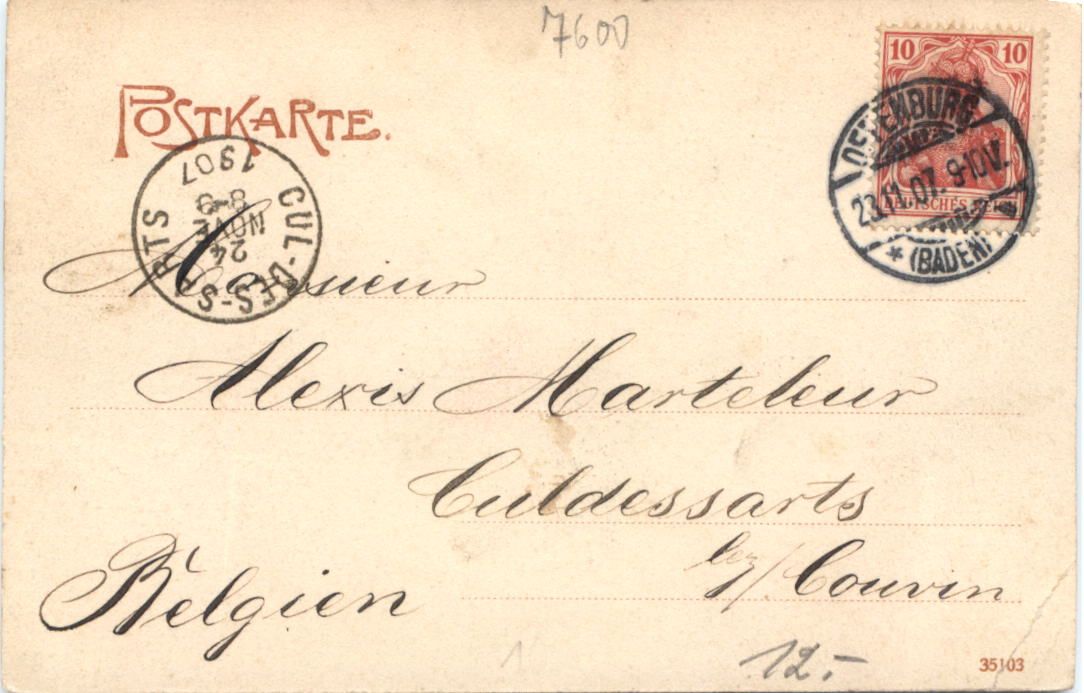 7600
POSTKARTE.
10 10
DEUTSCHES REICH
OFFENBURG
23.11.07. 9-10V.
* (BADEN)
CUL-DES-SARTS
1907
8-9
NOVE
24
Monsieur
Alexis Marteleur
Culdessarts
bez/Couvin
Belgien
12.-
35103